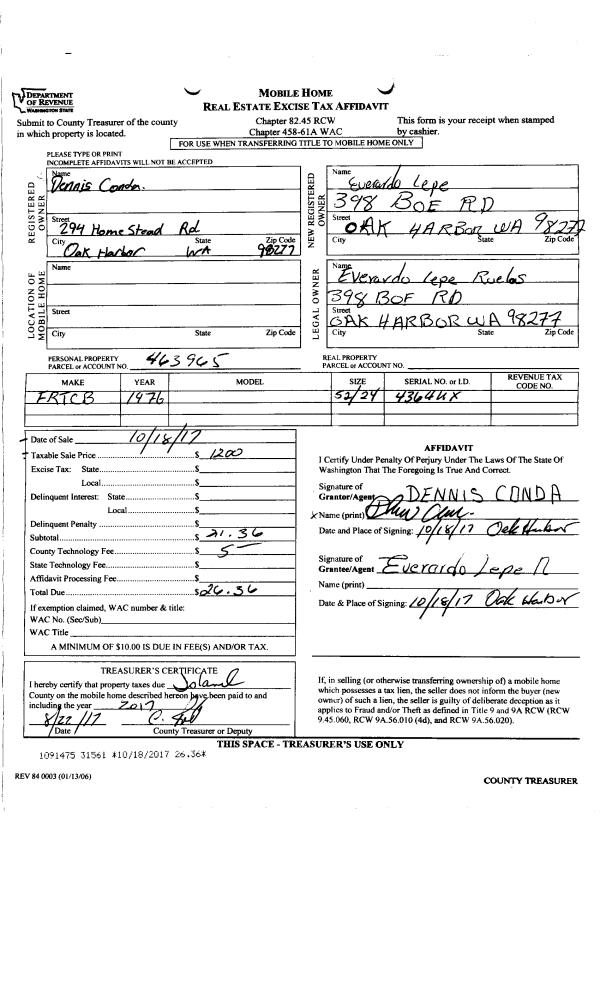 DEPARTMENT
OF REVENUE
WASHINGTON STATE
MOBILE HOME
REAL ESTATE EXCISE TAX AFFIDAVIT
Submit to County Treasurer of the county
in which property is located.
Chapter 82.45 RCW
Chapter 458-61A WAC
This form is your receipt when stamped
by cashier.
FOR USE WHEN TRANSFERRING TITLE TO MOBILE HOME ONLY
PLEASE TYPE OR PRINT
INCOMPLETE AFFIDAVITS WILL NOT BE ACCEPTED
REGISTERED OWNER
Name
Dennis Conda
Street
294 Home Stead Rd
City State Zip Code
Oak Harbor WA 98277
NEW REGISTERED OWNER
Name
Everardo Lepe
398 BOE RD
Street
OAK HARBOR WA 98277
City State Zip Code
LOCATION OF MOBILE HOME
Name
Street
City State Zip Code
LEGAL OWNER
Name
Everardo Lepe Ruelas
398 BOE RD
Street
OAK HARBOR WA 98277
City State Zip Code
PERSONAL PROPERTY
PARCEL or ACCOUNT NO. 463965
REAL PROPERTY
PARCEL or ACCOUNT NO.
MAKE YEAR MODEL SIZE SERIAL NO. or I.D. REVENUE TAX CODE NO.
FRTCB 1976 52/24 4364UX
Date of Sale 10/18/17
Taxable Sale Price $ 1200
Excise Tax: State $
Local $
Delinquent Interest: State $
Local $
Delinquent Penalty $
Subtotal $ 21.36
County Technology Fee $ 5
State Technology Fee $
Affidavit Processing Fee $
Total Due $ 26.36
If exemption claimed, WAC number & title:
WAC No. (Sec/Sub)
WAC Title
A MINIMUM OF $10.00 IS DUE IN FEE(S) AND/OR TAX.
AFFIDAVIT
I Certify Under Penalty Of Perjury Under The Laws Of The State Of
Washington That The Foregoing Is True And Correct.
Signature of
Grantor/Agent DENNIS CONDA
Name (print)
Date and Place of Signing: 10/18/17 Oak Harbor
Signature of
Grantee/Agent Everardo Lepe R
Name (print)
Date & Place of Signing: 10/18/17 Oak Harbor
TREASURER'S CERTIFICATE
I hereby certify that property taxes due Island
County on the mobile home described hereon have been paid to and
including the year 2017
8/22/17
Date County Treasurer or Deputy
If, in selling (or otherwise transferring ownership of) a mobile home
which possesses a tax lien, the seller does not inform the buyer (new
owner) of such a lien, the seller is guilty of deliberate deception as it
applies to Fraud and/or Theft as defined in Title 9 and 9A RCW (RCW
9.45.060, RCW 9A.56.010 (4d), and RCW 9A.56.020).
THIS SPACE - TREASURER'S USE ONLY
1091475 31561 *10/18/2017 26.36*
REV 84 0003 (01/13/06)
COUNTY TREASURER